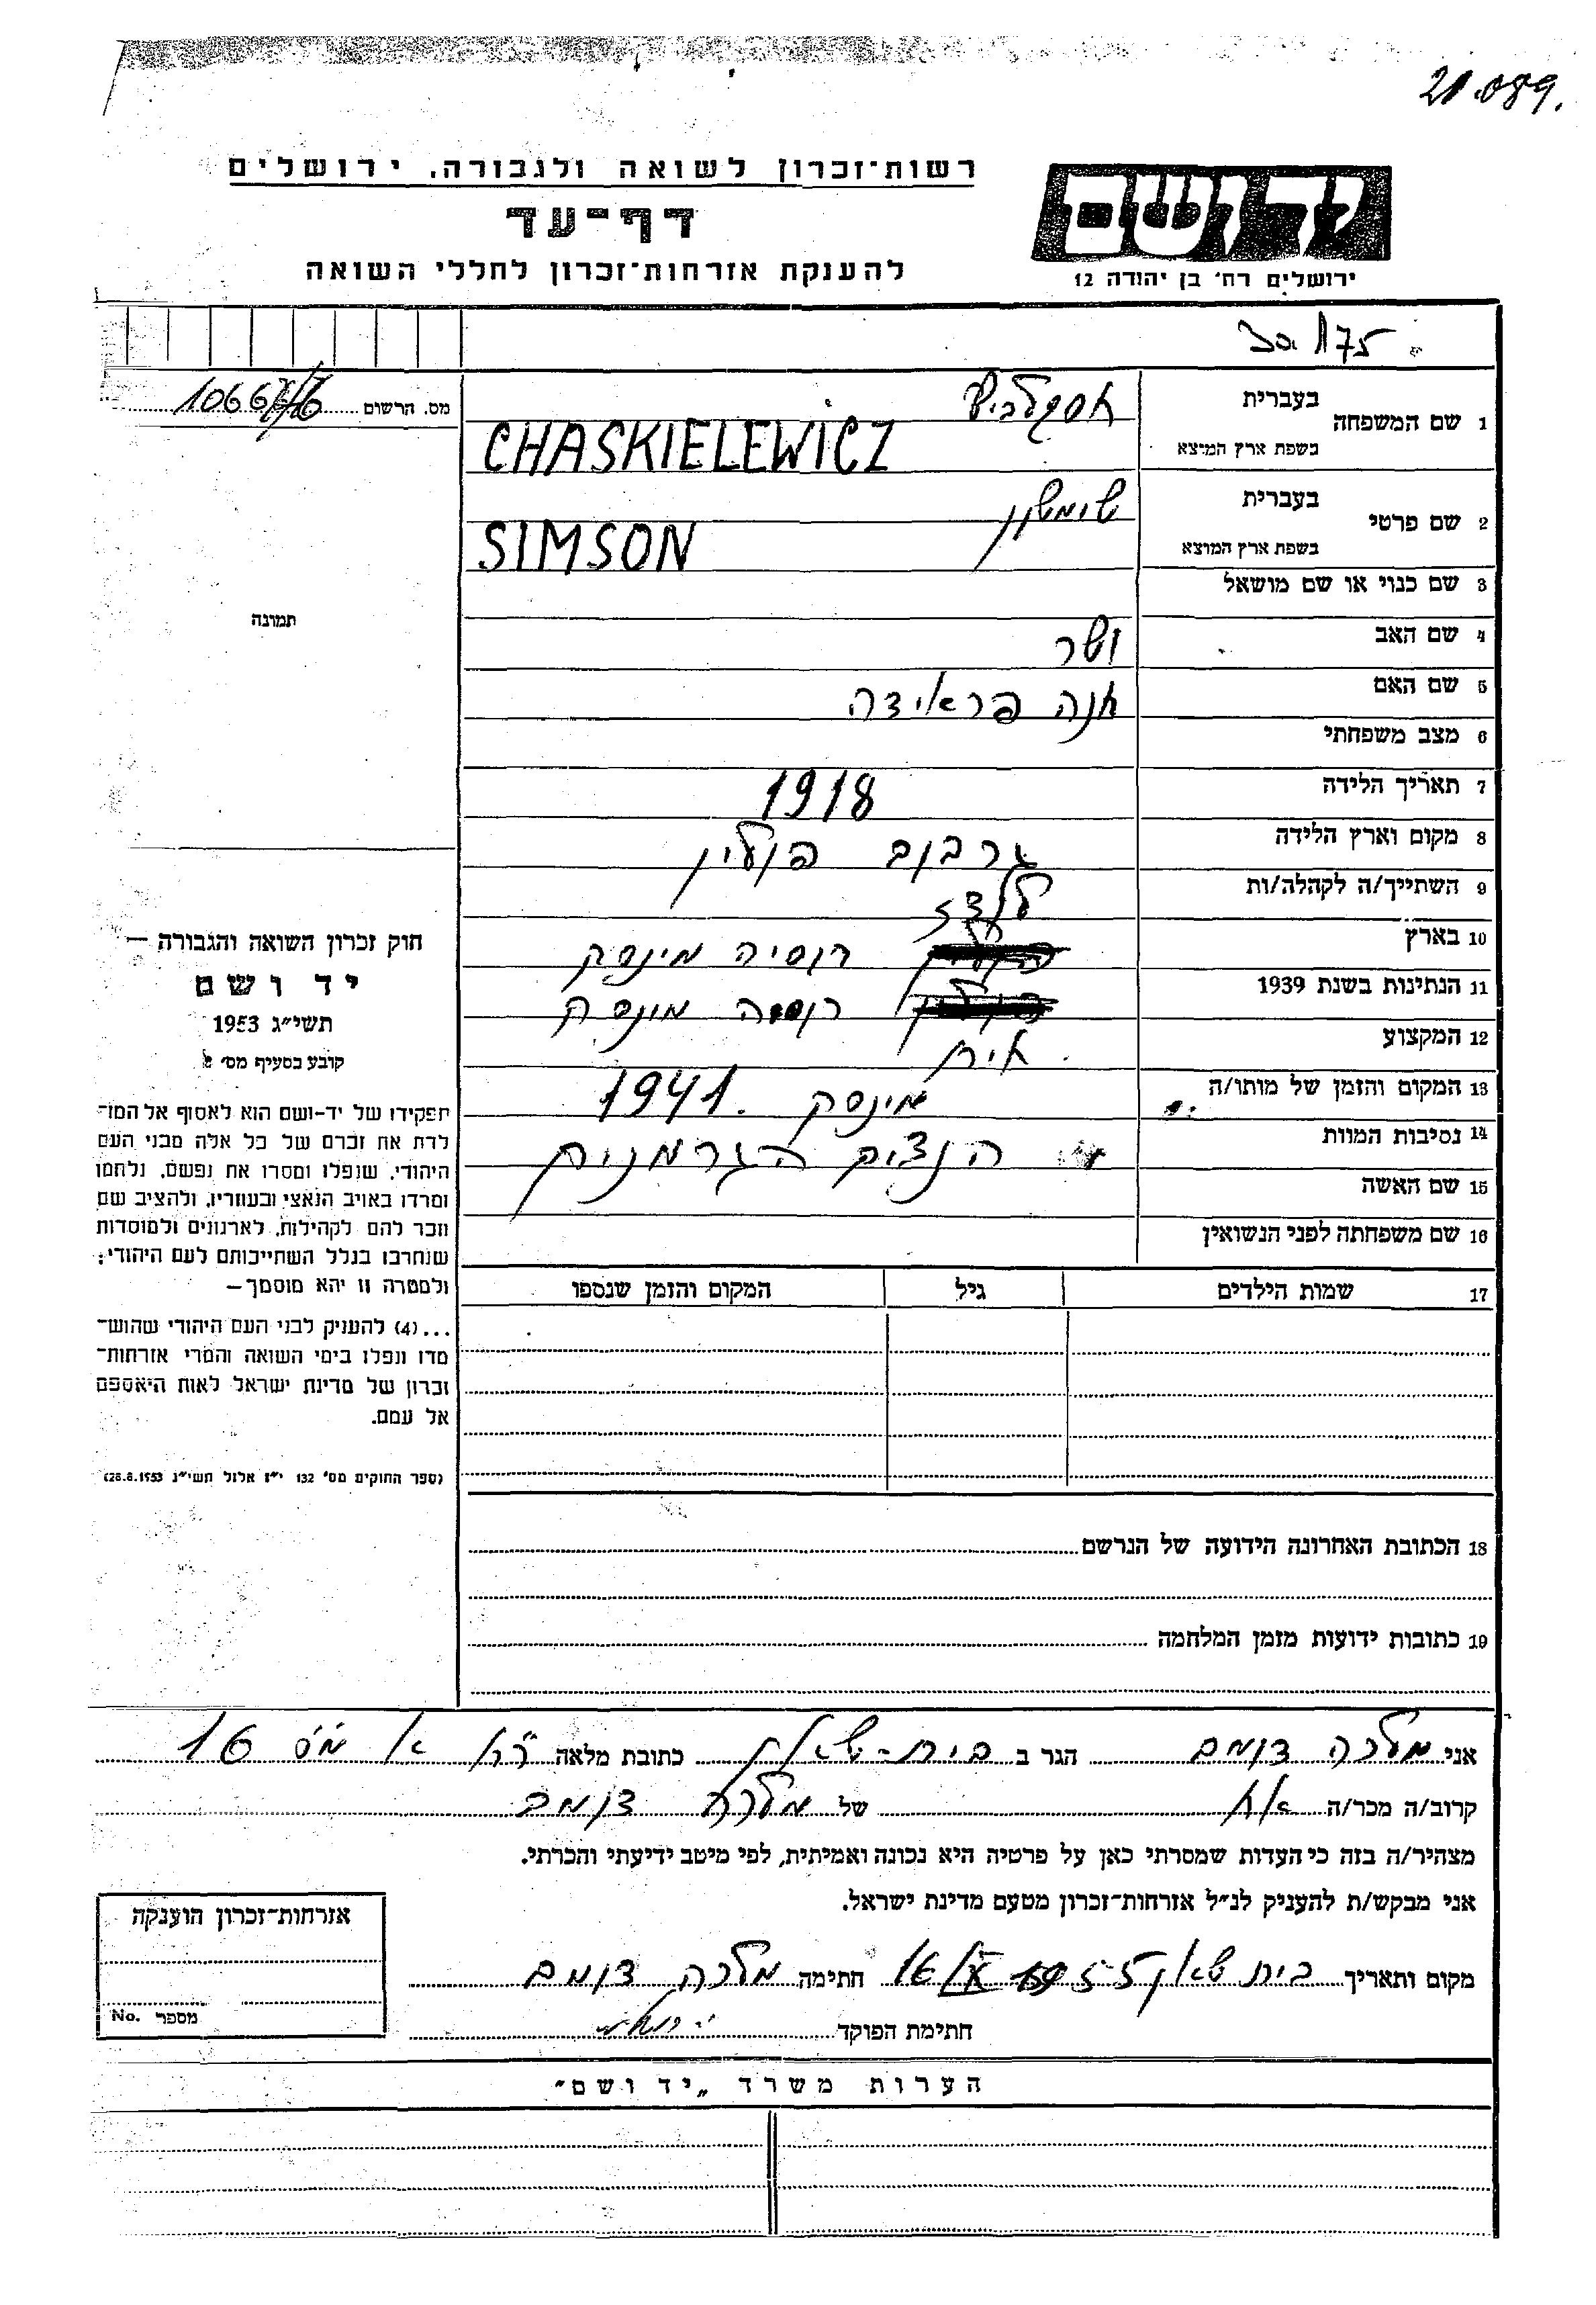 21.089.
רשות־זכרון לשואה ולגבורה, ירושלים
דף־עד
להענקת אזרחות־זכרון לחללי השואה
יד ושם
ירושלים רח׳ בן יהודה 12
30.175
מס. הרשום
1 שם המשפחה בעברית
בשפת ארץ המוצא CHASKIELEWICZ
2 שם פרטי בעברית שימשון
בשפת ארץ המוצא SIMSON
3 שם כנוי או שם מושאל
תמונה
4 שם האב
5 שם האם חנה
6 מצב משפחתי
7 תאריך הלידה 1918
8 מקום וארץ הלידה פולין
9 השתייך/ה לקהלה/ות
10 בארץ רוסיה מינסק
11 הנתינות בשנת 1939
12 המקצוע
13 המקום והזמן של מותו/ה מינסק 1941.
14 נסיבות המוות
15 שם האשה
16 שם משפחתה לפני הנשואין
17 שמות הילדים גיל המקום והזמן שנספו
18 הכתובת האחרונה הידועה של הנרשם
19 כתובות ידועות מזמן המלחמה
חוק זכרון השואה והגבורה –
יד ושם
תשי״ג 1953
קובע בסעיף מס׳ 2
תפקידו של יד-ושם הוא לאסוף אל המו־
לדת את זכרם של כל אלה מבני העם
היהודי, שנפלו ומסרו את נפשם, נלחמו
ומרדו באויב הנאצי ובעוזריו, ולהציב שם
וזכר להם לקהילות, לארגונים ולמוסדות
שנחרבו בגלל השתייכותם לעם היהודי;
ולמטרה זו יהא מוסמך –
...(4) להעניק לבני העם היהודי שהוש־
מדו ונפלו בימי השואה והמרי אזרחות־
זכרון של מדינת ישראל לאות היאספם
אל עמם.
(ספר החוקים מס׳ 132 י״ז אלול תשי״ג 28.8.1953)
אני מלכה דומב הגר ב בית-שאן כתובת מלאה 16
קרוב/ה מכר/ה אח של מלכה דומב
מצהיר/ה בזה כי העדות שמסרתי כאן על פרטיה היא נכונה ואמיתית, לפי מיטב ידיעתי והכרתי.
אני מבקש/ת להעניק לנ״ל אזרחות־זכרון מטעם מדינת ישראל.
מקום ותאריך בית שאן חתימה מלכה דומב
חתימת הפוקד
אזרחות־זכרון הוענקה
מספר No.
הערות משרד „יד ושם״